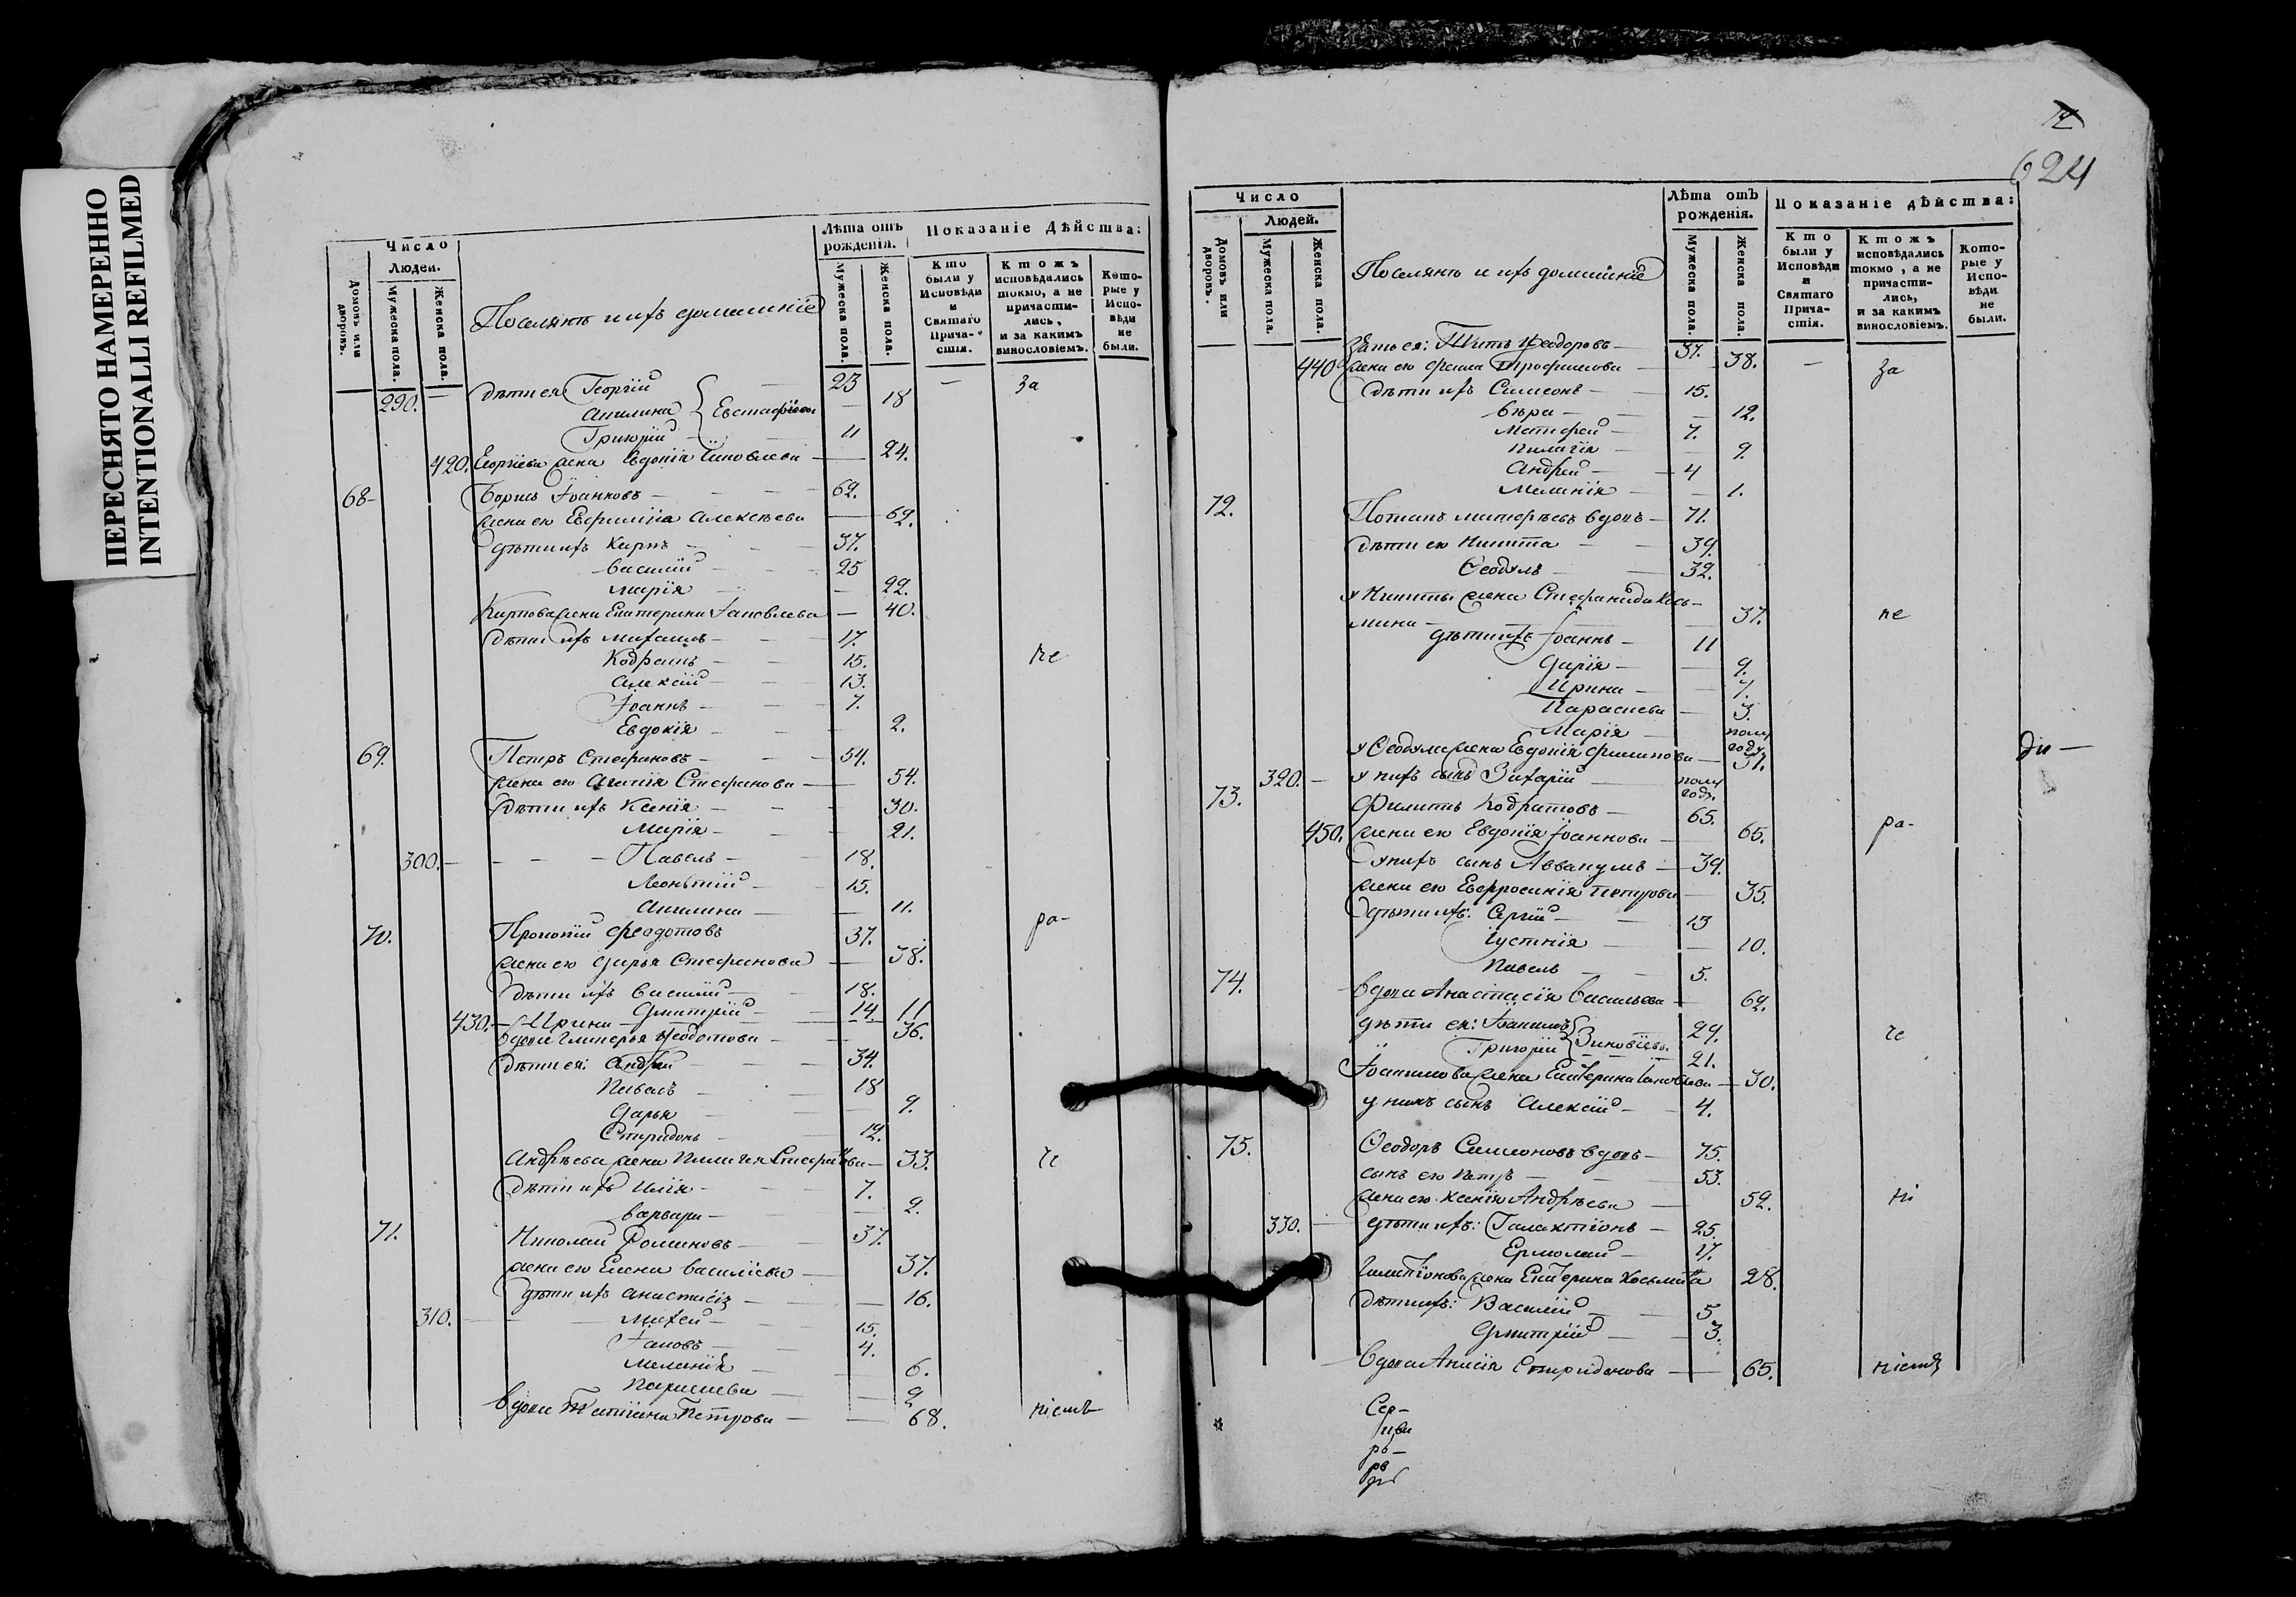 ПЕРЕСНЯТО НАМЕРЕННО
INTENTIONALLI REFILMED
Число
Людей.
Домовъ или дворовъ.
Мужеска пола.
Женска пола.
Поселянѣ и ихъ домашніе
Лѣта отъ рожденія.
Мужеска пола.
Женска пола.
Показаніе Дѣйства:
Кто были у Исповѣди и Святаго Прича-стія.
Ктожъ исповѣдались токмо, а не причасти-лись, и за какимъ винословіемъ.
Кото-рые у Испо-вѣди не были.
дѣти ея Георгій 23 — за
290. — Акилина Евстафіевы — 18
Григорій 11
420. Георгіева жена Евдокія Іаковлева — 24.
68 — Борисъ Іоанновъ — 62.
жена его Евфимія Алексѣева — 62.
дѣти ихъ Карпъ — 37.
Василій — 25
Марія — 22.
Карпова жена Екатерина Іаковлева — 40.
дѣти ихъ Михаилъ — 17.
Кодратъ — 15. не
Алексій — 13.
Іоаннъ — 7.
Евдокія — 2.
69. Петръ Стефановъ — 54.
жена его Агапія Стефанова — 54.
дѣти ихъ Ксенія — 30.
Марія — 21.
300. — Павелъ — 18.
Леонтій — 15.
Акилина — 11.
70. Прокопій Феодотовъ 37. ра-
жена его Дарья Стефанова — 38.
дѣти ихъ Василій — 18.
Дмитрій — 14.
430. — Ирина — 11
вдова Гликерья Ѳеодотова — 36.
дѣти ея: Андрей — 34.
Павелъ — 18
Дарья — 9.
Спиридонъ — 12.
Андрѣева жена Пелагея Стефанова — 33. че
дѣти ихъ Илія — 7.
Варвара — 2.
71. Николай Романовъ — 37.
жена его Елена Василіева — 37.
дѣти ихъ Анастасія — 16.
310. — Михей — 15.
Іаковъ — 4.
Меланія — 6.
Параскева — 2
вдова Татіана Петрова — 68. ніемъ
624
Число
Людей.
Домовъ или дворовъ.
Мужеска пола.
Женска пола.
Поселянѣ и ихъ домашніе
Лѣта отъ рожденія.
Мужеска пола.
Женска пола.
Показаніе дѣйства:
Кто были у Исповѣди и Святаго Прича-стія.
Ктожъ исповѣдались токмо, а не причасти-лись, и за какимъ винословіемъ.
Кото-рые у Испо-вѣди не были.
Зять ея: Титъ Ѳеодоровъ — 37.
440 жена его Фекла Трофимова — 38. — за
дѣти ихъ Симеонъ — 15.
Вѣра — 12.
Матфей — 7.
Пелагія — 9.
Андрей — 4
Меланія — 1.
72. Потапъ Матфѣевъ вдовъ — 71.
дѣти его Никита — 39.
Ѳеодулъ — 32.
у Никиты жена Стефанида Кось-
мина — 37. не
дѣти ихъ Іоаннъ — 11
Дарія — 9.
Ирина — 7.
Параскева — 3.
Марія — полу году.
у Ѳеодула жена Евдокія Филипова — 31. ди —
320. — у нихъ сынъ Захарій полу году.
73. Филипъ Кодратовъ — 65.
450. жена его Евдокія Іоаннова — 65. ра-
у нихъ сынъ Аввакумъ — 39.
жена его Евфросинія Петрова — 35.
дѣти ихъ: Сергій — 13
Іустинія — 10.
Павелъ — 5.
74. вдова Анастасія Васильева — 62.
дѣти ея: Іоакимъ 29. че
Григорій Зиновіевы. 21.
Іоакимова жена Екатерина Іаковлева — 30.
у нихъ сынъ Алексій — 4.
75. Ѳеодоръ Симеоновъ вдовъ — 75.
сынъ его Петръ — 53.
жена его Ксенія Андрѣева — 52. ні
330. — дѣти ихъ: Галактіонъ — 25.
Ермолай — 17.
Галактіонова жена Екатерина Косьмина 28.
дѣти ихъ: Василій — 5
Дмитрій — 3.
вдова Анисія Спиридонова — 65. ніемъ
Сер-